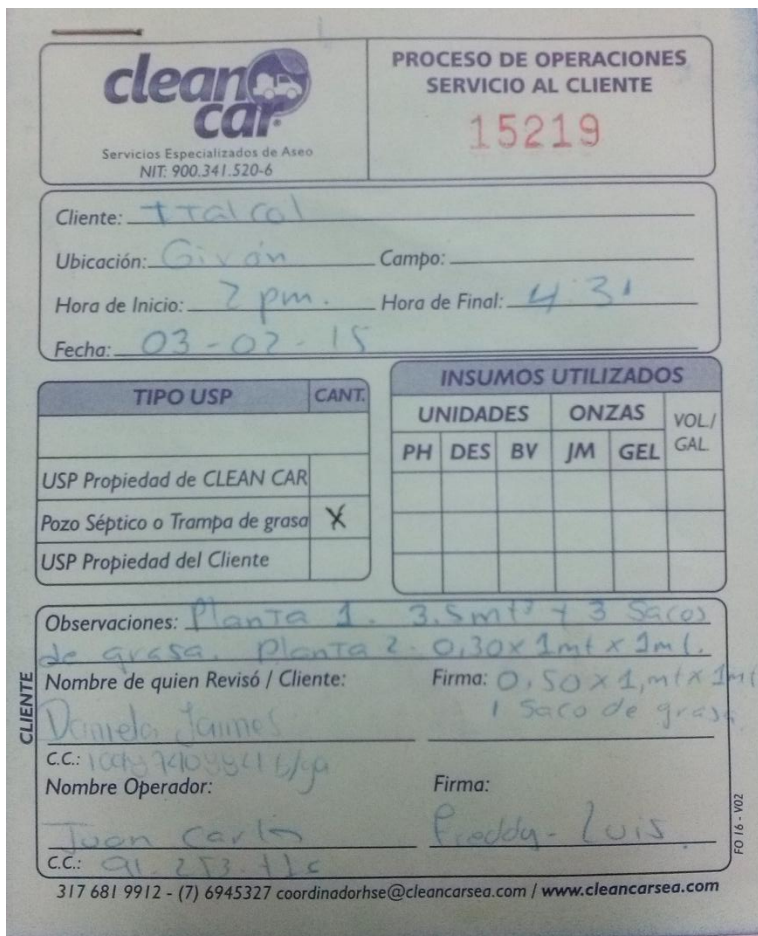 clean
car
Servicios Especializados de Aseo
NIT: 900.341.520-6
PROCESO DE OPERACIONES
SERVICIO AL CLIENTE
15219
Cliente:
Ubicación: Girón Campo:
Hora de Inicio: 2 pm. Hora de Final: 4:31
Fecha: 03-02-15
TIPO USP CANT.
USP Propiedad de CLEAN CAR
Pozo Séptico o Trampa de grasa X
USP Propiedad del Cliente
INSUMOS UTILIZADOS
UNIDADES ONZAS VOL./
GAL.
PH DES BV JM GEL
Observaciones: Planta 1. 3.5mt³ y 3 Sacos
de grasa. Planta 2. 0,30x 1mt x 1mt.
Nombre de quien Revisó / Cliente: Firma: 0,50 x 1,mt x 1mt
1 Saco de grasa
Daniela Jaimes
C.C.:
Nombre Operador: Firma:
Juan Carlos Freddy - Luis
C.C.: 91.253.
CLIENTE
FO 16 - V02
317 681 9912 - (7) 6945327 coordinadorhse@cleancarsea.com / www.cleancarsea.com